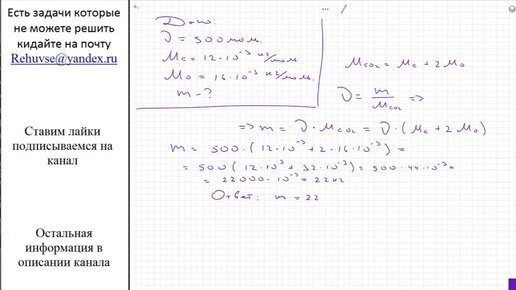 Есть задачи которые
не можете решить
кидайте на почту
Rehuvse@yandex.ru
Ставим лайки
подписываемся на
канал
Остальная
информация в
описании канала
Дано:
ν = 500 моль.
Mc = 12·10⁻³ кг/моль
Mo = 16·10⁻³ кг/моль.
m - ?
Mco₂ = Mc + 2Mo
ν = m/Mco₂ =>
=> m = ν · Mco₂ = ν · (Mc + 2Mo)
m = 500 · (12·10⁻³ + 2·16·10⁻³) =
= 500 (12·10⁻³ + 32·10⁻³) = 500·44·10⁻³ =
= 22000·10⁻³ = 22 кг
Ответ: m = 22